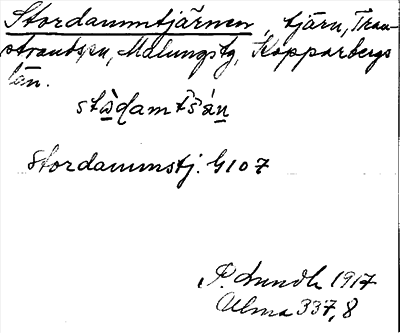 Stordammtjärnen, tjärn, Tran-
strands sn, Malungs tg, Kopparbergs
län.
stordammstj. G107
P. Lundh 1917
Ulma 337,8